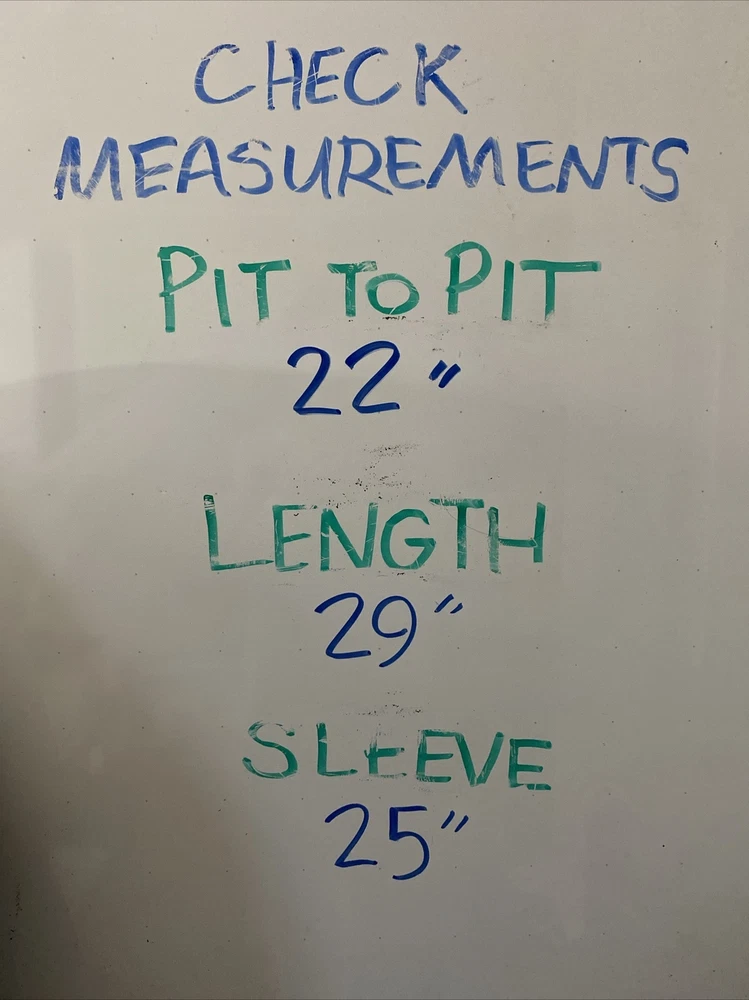 CHECK
MEASUREMENTS
PIT TO PIT
22"
LENGTH
29"
SLEEVE
25"